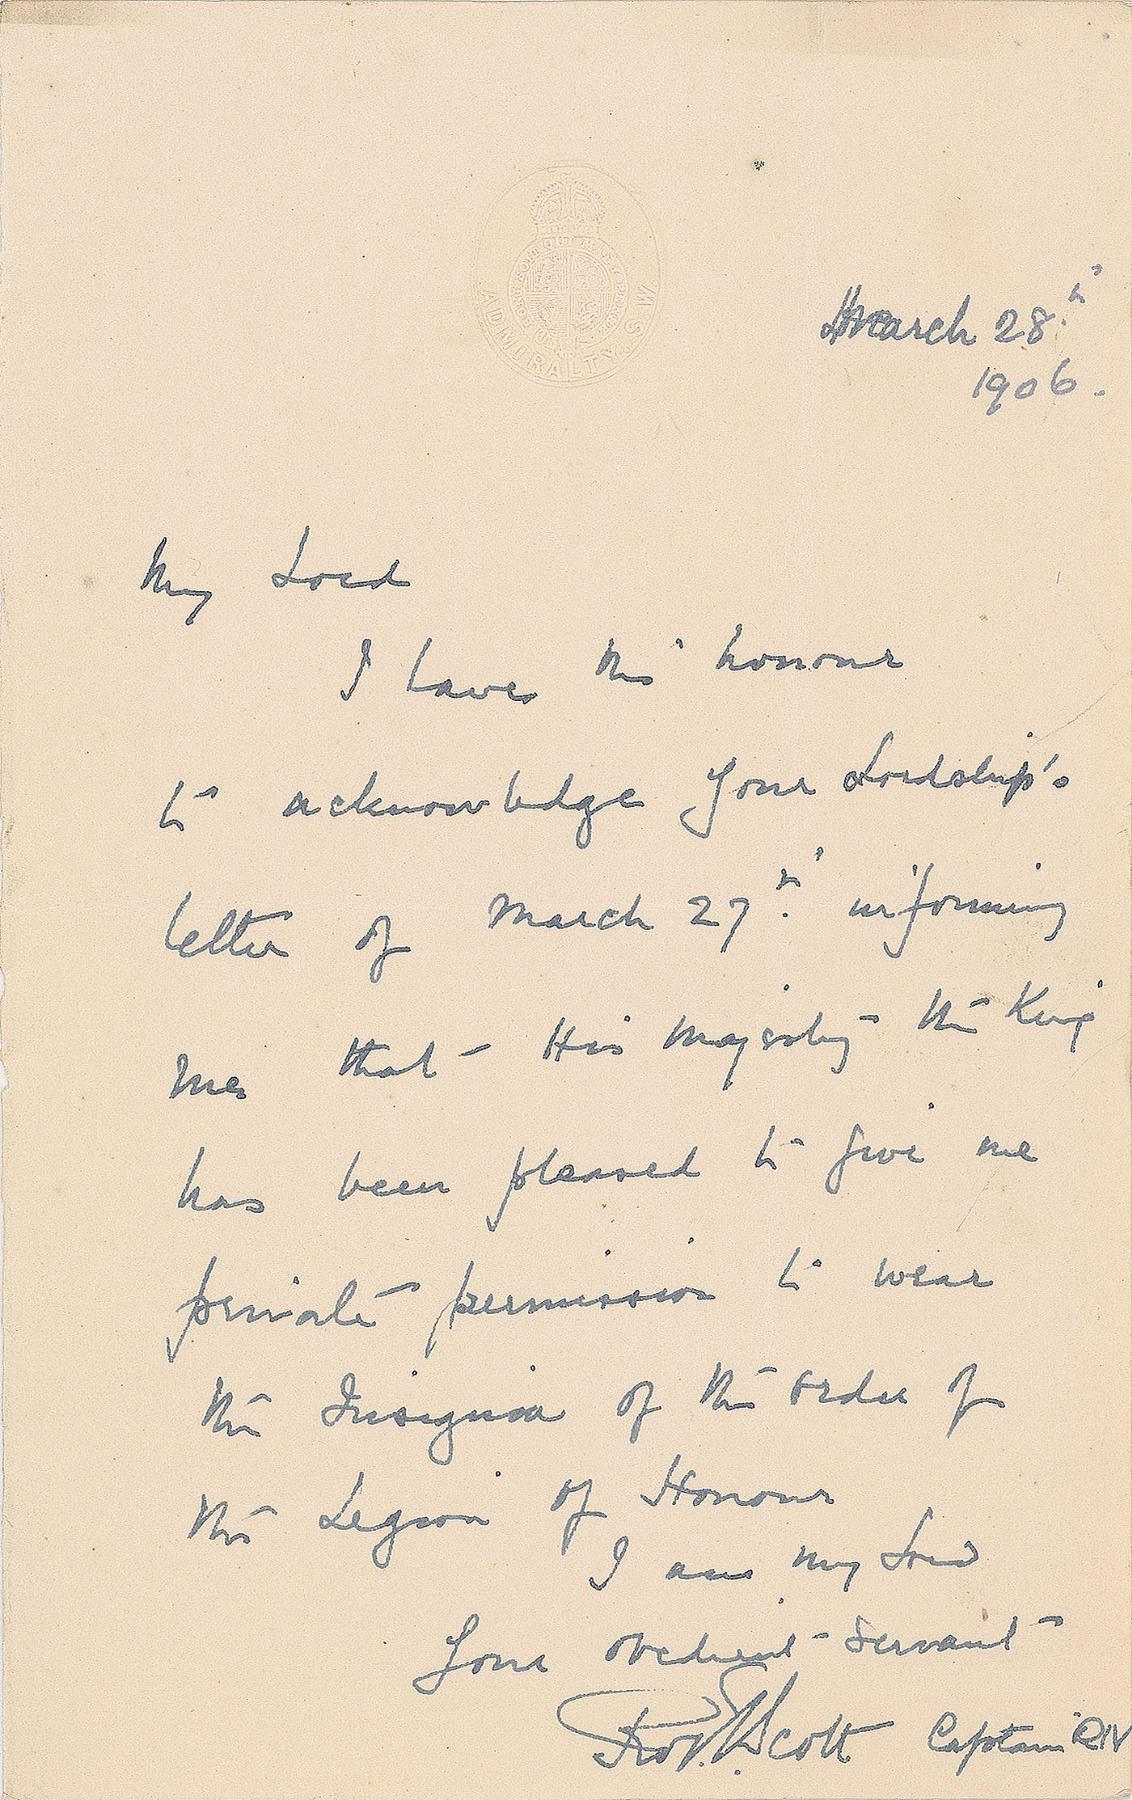 HONI SOIT QUI MAL Y PENSE
ADMIRALTY. S.W.
March 28.th
1906.
My Lord
I have the honour
to acknowledge your Lordship's
letter of March 27.th informing
me that His Majesty the King
has been pleased to give me
private permission to wear
the Insignia of the order of
the Legion of Honour
I am my Lord
Your obedient servant
Rob. F. Scott Captain RN